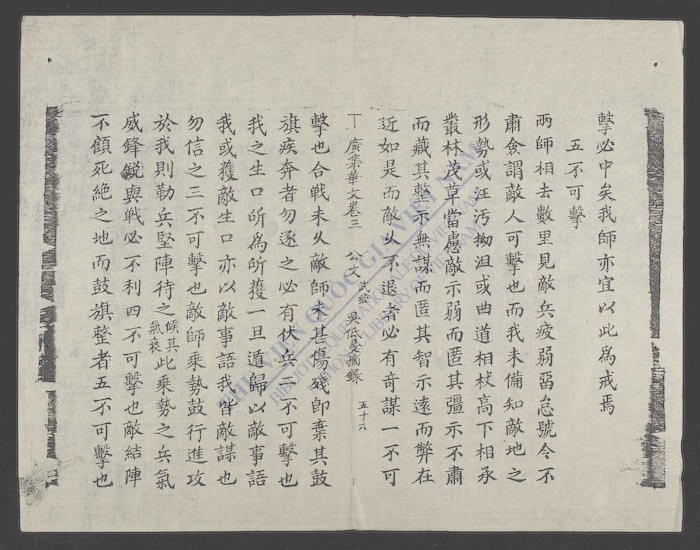 擊必中矣我師亦宜以此為戒焉
五不可擊
兩師相去數里見敵兵疲弱
號令不
肅僉謂敵人可擊也而我未備知敵地之
形勢或汪汚拗沮或曲道相杖高下相承
叢林茂草當慮敵示弱而匿其彊示不肅
而藏其整示無謀而匿其智示遠而弊在
近如是而敵乆不退者必有奇謀一不可
廣集華文卷三 公文 武 吳 摘錄 五十六
擊也合戦未乆敵師未甚傷殘卽棄其鼓
旗疾奔者勿逐之必有伏兵二不可擊也
我之生口所爲所獲一旦遁歸以敵事語
我或獲敵生口亦以敵事語我皆敵謀也
勿信之三不可擊也敵師乘勢鼓行進攻
於我則勒兵堅陣待之候其氣衰此乘勢之兵氣
威鋒銳與戦必不利四不可擊也敵結陣
不顧死絶之地而鼓旗整者五不可擊也
THƯ VIỆN QUỐC GIA VIỆT NAM